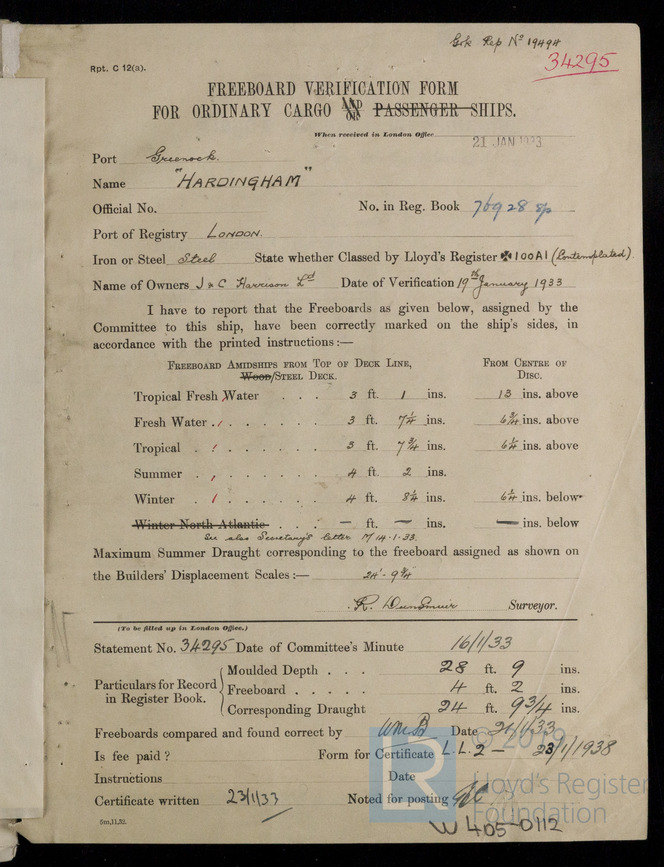 Gok Rep No 19494
34295
Rpt. C 12(a).
FREEBOARD VERIFICATION FORM
FOR ORDINARY CARGO AND OR PASSENGER SHIPS.
When received in London Office 21 JAN 1933
Port Greenock.
Name "HARDINGHAM"
Official No. No. in Reg. Book 76928 sp
Port of Registry LONDON.
Iron or Steel Steel State whether Classed by Lloyd's Register ✠100A1 (Contemplated).
Name of Owners J & C Harrison Ld Date of Verification 19th January 1933
I have to report that the Freeboards as given below, assigned by the
Committee to this ship, have been correctly marked on the ship's sides, in
accordance with the printed instructions :—
FREEBOARD AMIDSHIPS FROM TOP OF DECK LINE, FROM CENTRE OF
WOOD/STEEL DECK. DISC.
Tropical Fresh Water . . . 3 ft. 1 ins. 13 ins. above
Fresh Water . . . . . . . 3 ft. 7¼ ins. 6¾ ins. above
Tropical . . . . . . . 3 ft. 7¾ ins. 6¼ ins. above
Summer . . . . . . . 4 ft. 2 ins.
Winter . . . . . . . 4 ft. 8¼ ins. 6¼ ins. below
Winter North Atlantic . . . — ft. — ins. — ins. below
See also Secretary's letter M 14.1.33.
Maximum Summer Draught corresponding to the freeboard assigned as shown on
the Builders' Displacement Scales :— 24' - 9¾"
R. Dunsmuir Surveyor.
(To be filled up in London Office.)
Statement No. 34295 Date of Committee's Minute 16/1/33
Particulars for Record in Register Book.
Moulded Depth . . . 28 ft. 9 ins.
Freeboard . . . . . 4 ft. 2 ins.
Corresponding Draught 24 ft. 9 3/4 ins.
Freeboards compared and found correct by Date 21/1/33
Is fee paid ? Form for Certificate L.L.2 — 23/1/1938
Instructions Date
Certificate written 23/1/33 Noted for posting
5m,11,32.
© 2019
LR
Lloyd's Register
Foundation
W405-0112